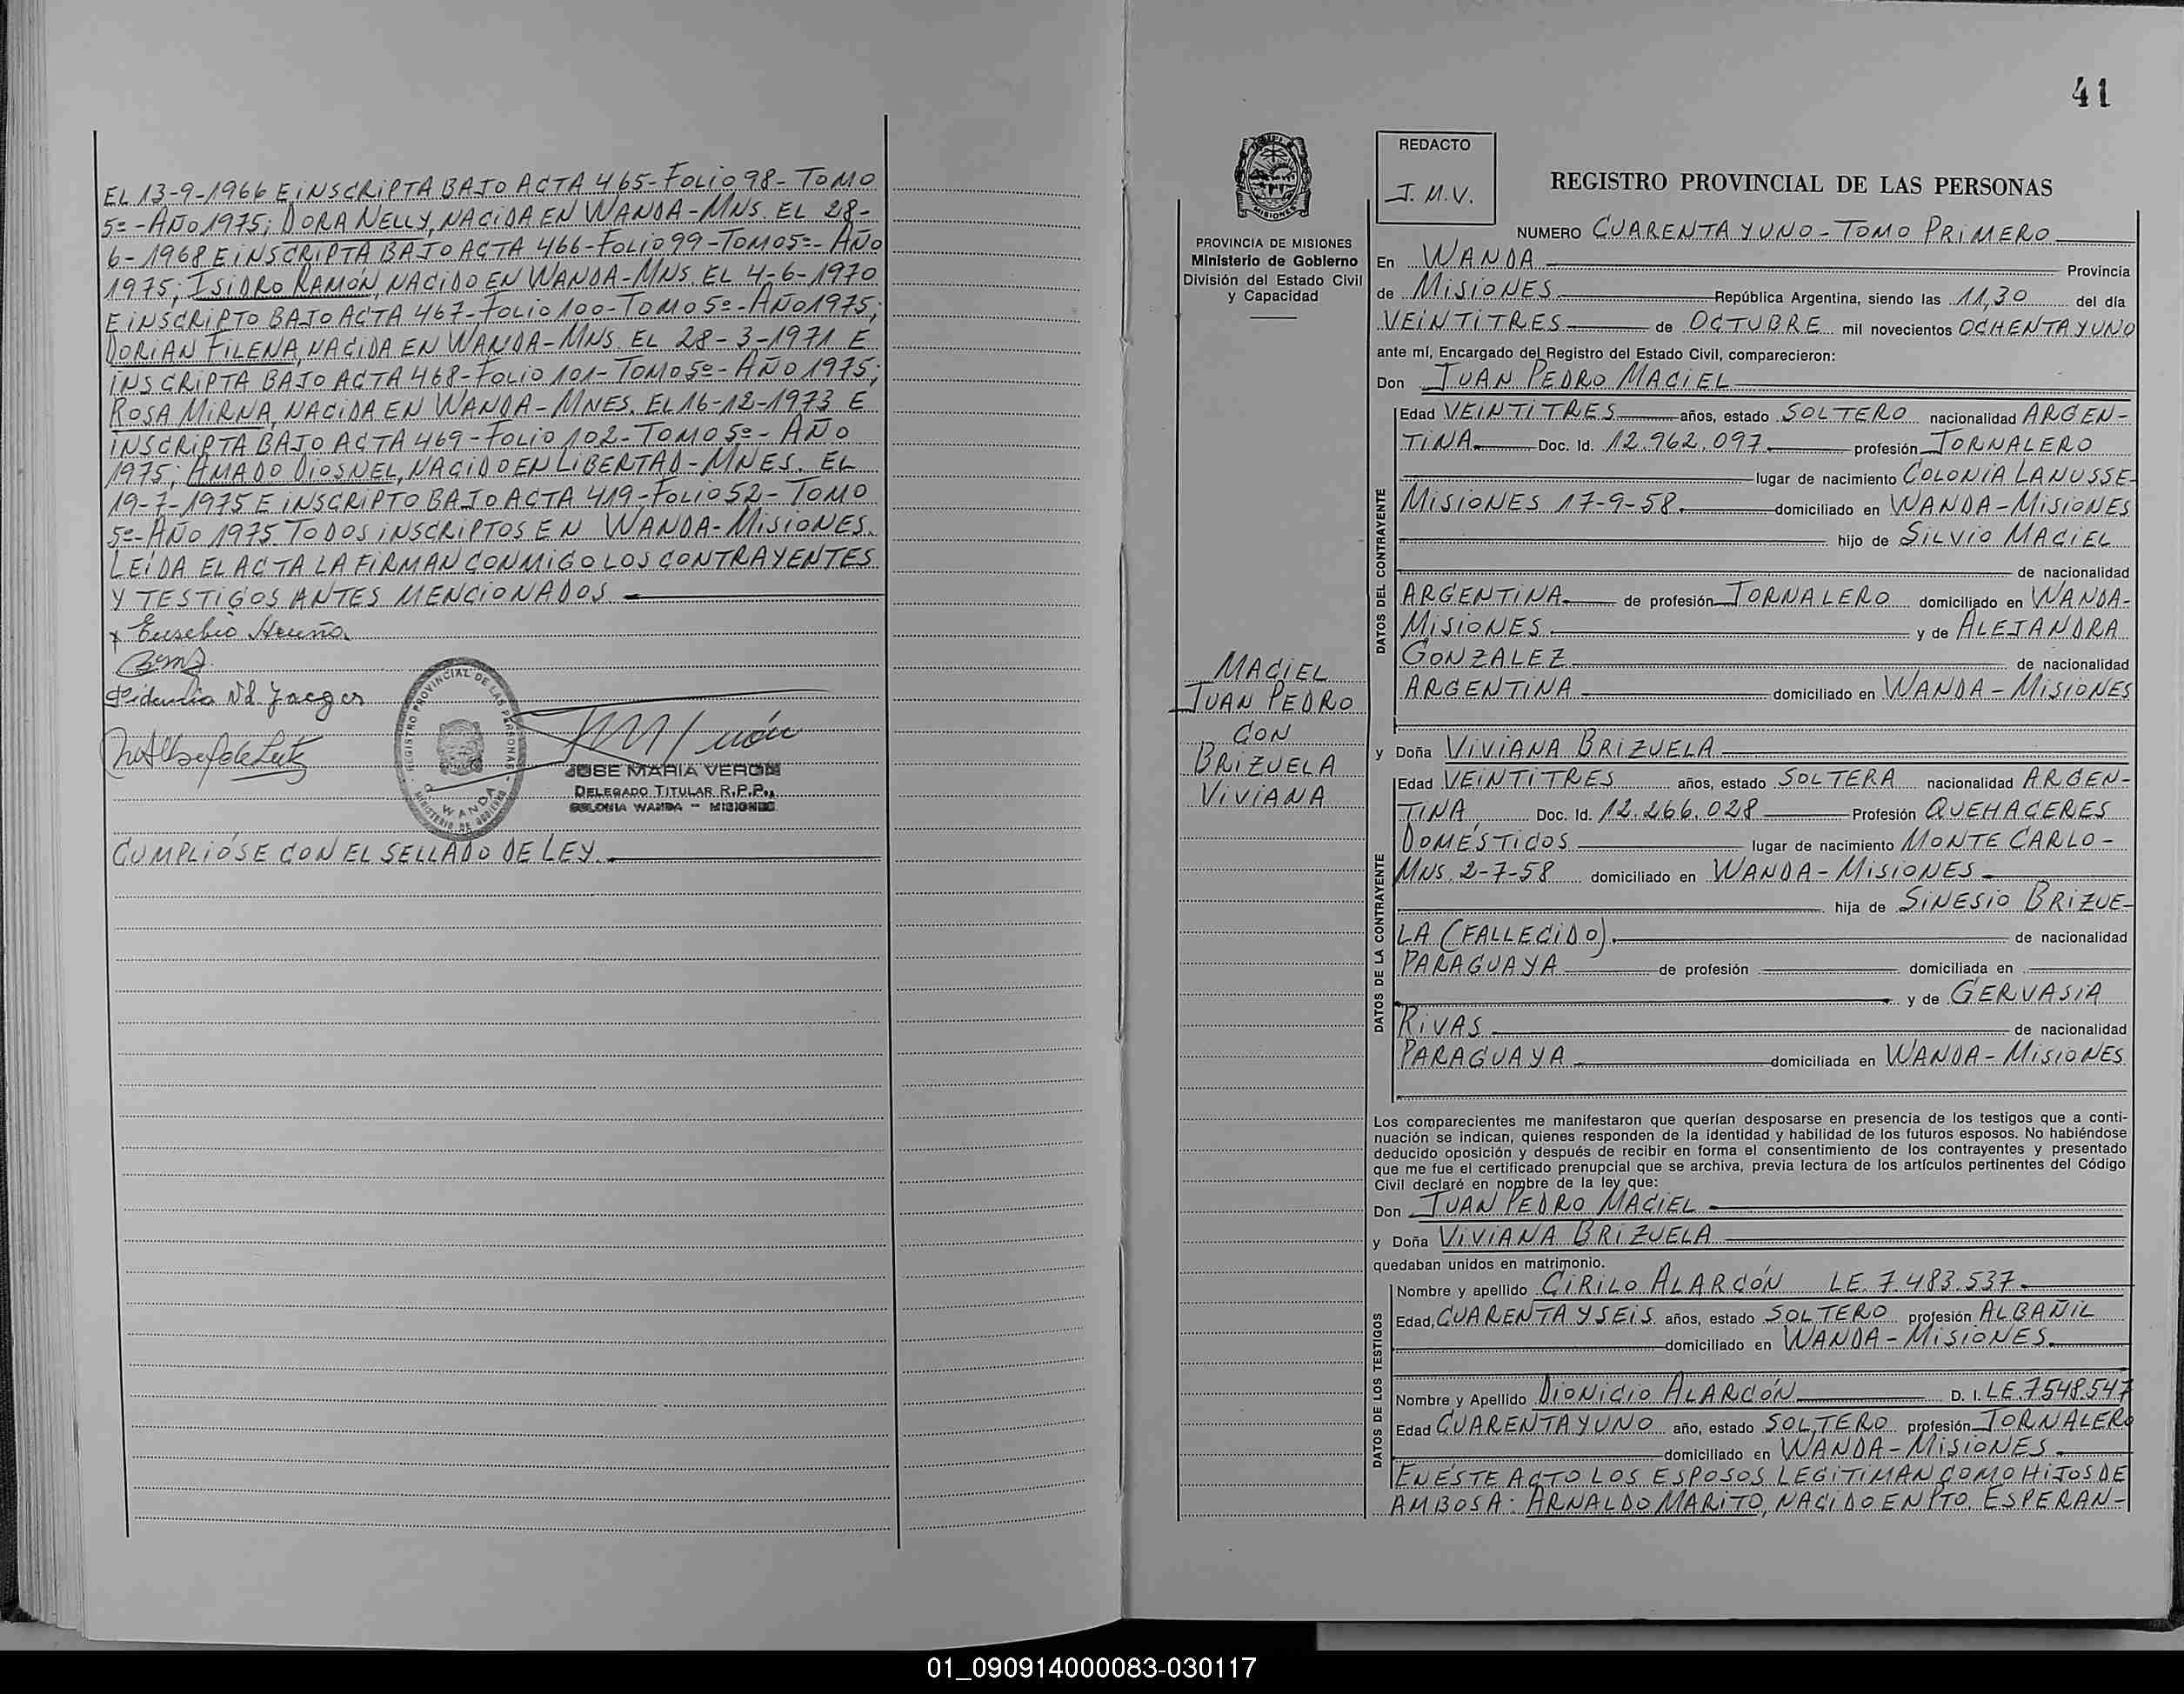 EL 13-9-1966 E INSCRIPTA BAJO ACTA 465-FOLIO 98-TOMO
5º-AÑO 1975; DORA NELLY, NACIDA EN WANDA-MNS. EL 28-
6-1968 E INSCRIPTA BAJO ACTA 466-FOLIO 99-TOMO 5º-AÑO
1975; ISIDRO RAMÓN, NACIDO EN WANDA-MNS. EL 4-6-1970
E INSCRIPTO BAJO ACTA 467-FOLIO 100-TOMO 5º-AÑO 1975;
DORIAN FILENA, NACIDA EN WANDA-MNS. EL 28-3-1971 E
INSCRIPTA BAJO ACTA 468-FOLIO 101-TOMO 5º-AÑO 1975;
ROSA MIRNA, NACIDA EN WANDA-MNES. EL 16-12-1973 E
INSCRIPTA BAJO ACTA 469-FOLIO 102-TOMO 5º-AÑO
1975; AMADO DIOSNEL, NACIDO EN LIBERTAD-MNES. EL
19-7-1975 E INSCRIPTO BAJO ACTA 419-FOLIO 52-TOMO
5º-AÑO 1975. TODOS INSCRIPTOS EN WANDA-MISIONES.
LEÍDA EL ACTA LA FIRMAN CONMIGO LOS CONTRAYENTES
Y TESTIGOS ANTES MENCIONADOS.
x Eusebio Acuña
REGISTRO PROVINCIAL DE LAS PERSONAS
WANDA
MINISTERIO DE GOBIERNO
JOSE MARIA VERON
DELEGADO TITULAR R.P.P.,
COLONIA WANDA - MISIONES
CUMPLIÓSE CON EL SELLADO DE LEY.
41
MISIONES
PROVINCIA DE MISIONES
Ministerio de Gobierno
División del Estado Civil
y Capacidad
MACIEL
JUAN PEDRO
CON
BRIZUELA
VIVIANA
REDACTO
J. M. V.
REGISTRO PROVINCIAL DE LAS PERSONAS
NUMERO CUARENTA Y UNO - TOMO PRIMERO
En WANDA Provincia
de MISIONES República Argentina, siendo las 11,30 del día
VEINTITRES de OCTUBRE mil novecientos OCHENTA Y UNO
ante mí, Encargado del Registro del Estado Civil, comparecieron:
Don JUAN PEDRO MACIEL
DATOS DEL CONTRAYENTE
Edad VEINTITRES años, estado SOLTERO nacionalidad ARGEN-
TINA Doc. Id. 12.962.097 profesión JORNALERO
lugar de nacimiento COLONIA LANUSSE-
MISIONES 17-9-58. domiciliado en WANDA-MISIONES
hijo de SILVIO MACIEL
de nacionalidad
ARGENTINA de profesión JORNALERO domiciliado en WANDA-
MISIONES y de ALEJANDRA
GONZALEZ de nacionalidad
ARGENTINA domiciliado en WANDA-MISIONES
y Doña VIVIANA BRIZUELA
DATOS DE LA CONTRAYENTE
Edad VEINTITRES años, estado SOLTERA nacionalidad ARGEN-
TINA Doc. Id. 12.266.028 Profesión QUEHACERES
DOMÉSTICOS lugar de nacimiento MONTE CARLO-
MNS. 2-7-58 domiciliado en WANDA-MISIONES
hija de SINESIO BRIZUE-
LA (FALLECIDO). de nacionalidad
PARAGUAYA de profesión domiciliada en
y de GERVASIA
RIVAS de nacionalidad
PARAGUAYA domiciliada en WANDA-MISIONES
Los comparecientes me manifestaron que querían desposarse en presencia de los testigos que a conti-
nuación se indican, quienes responden de la identidad y habilidad de los futuros esposos. No habiéndose
deducido oposición y después de recibir en forma el consentimiento de los contrayentes y presentado
que me fue el certificado prenupcial que se archiva, previa lectura de los artículos pertinentes del Código
Civil declaré en nombre de la ley que:
Don JUAN PEDRO MACIEL
y Doña VIVIANA BRIZUELA
quedaban unidos en matrimonio.
DATOS DE LOS TESTIGOS
Nombre y apellido CIRILO ALARCÓN LE. 7.483.537
Edad, CUARENTA Y SEIS años, estado SOLTERO profesión ALBAÑIL
domiciliado en WANDA-MISIONES.
Nombre y Apellido DIONICIO ALARCÓN D. I. LE. 7548.547
Edad CUARENTA Y UNO año, estado SOLTERO profesión JORNALERO
domiciliado en WANDA-MISIONES.
EN ÉSTE ACTO LOS ESPOSOS LEGITIMAN COMO HIJOS DE
AMBOS A: ARNALDO MARITO, NACIDO EN PTO. ESPERAN-
01_090914000083-030117